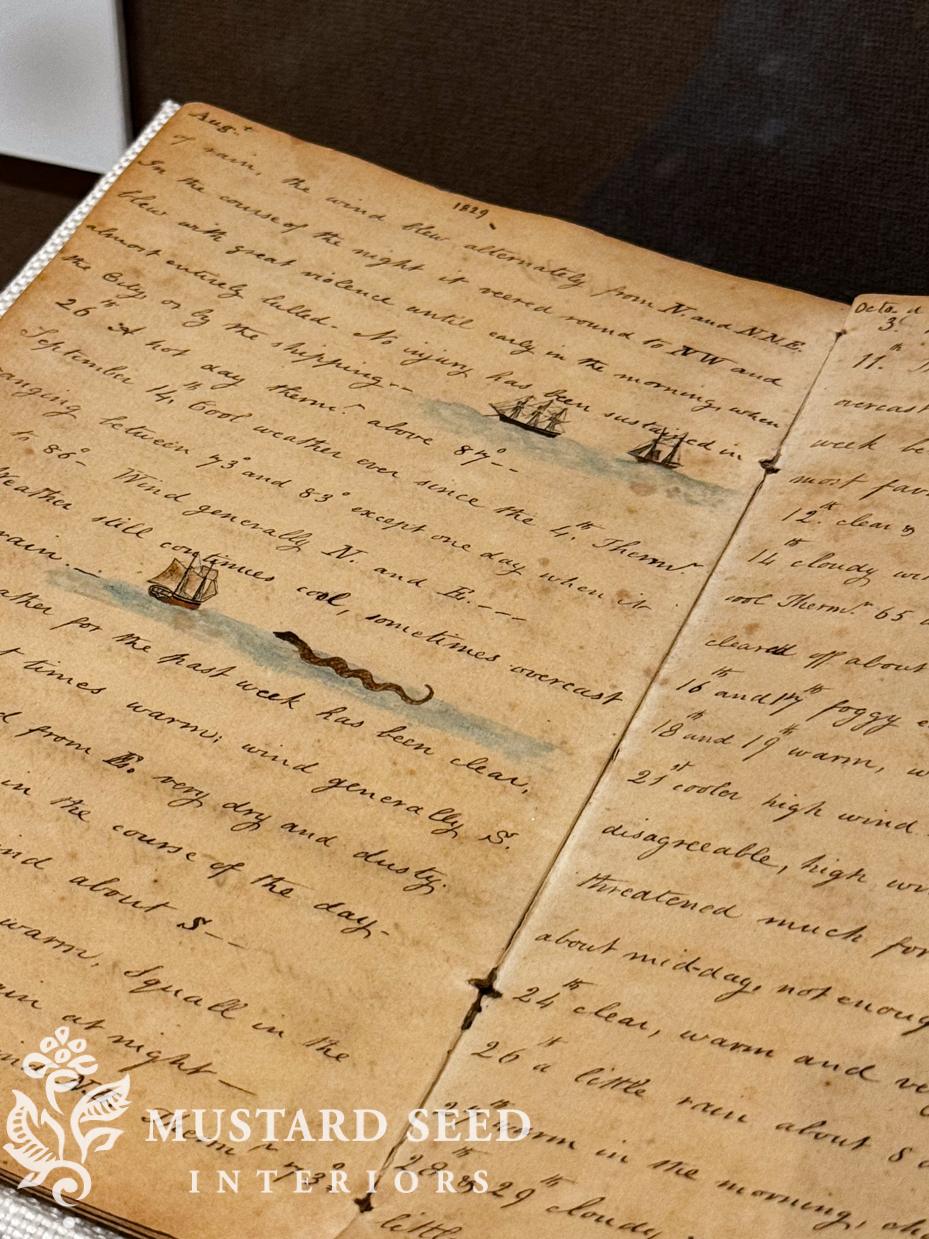 Aug.t
1829
of rain, the wind blew alternately from N. and NNE.
In the course of the night it veered round to NW and
blew with great violence until early in the morning, when
almost entirely lulled. No injury has been sustained in
the City, or by the shipping --
26th A hot day therm.r above 87° --
September 14th Cool weather ever since the 4th. Therm.r
ranging between 73° and 83° except one day when it
to 86° - Wind generally N. and E. ---
Weather still continues cool, sometimes overcast
rain. --
for the past week has been clear,
times warm; wind generally S.
from E. very dry and dusty.
in the course of the day.
about S --
warm, Squall in the
at night —
Therm.r 73°.
3.
11.th
overcast
week
most
12.th clear,
14th cloudy
cool Therm.r 65
cleared off about
16th and 17th foggy
18th and 19th warm,
21st cooler high wind
disagreeable, high
threatened much for
about mid-day, not
24th clear, warm and
26th a little rain about 8
warm in the morning,
28th & 29th cloudy
MUSTARD SEED
INTERIORS